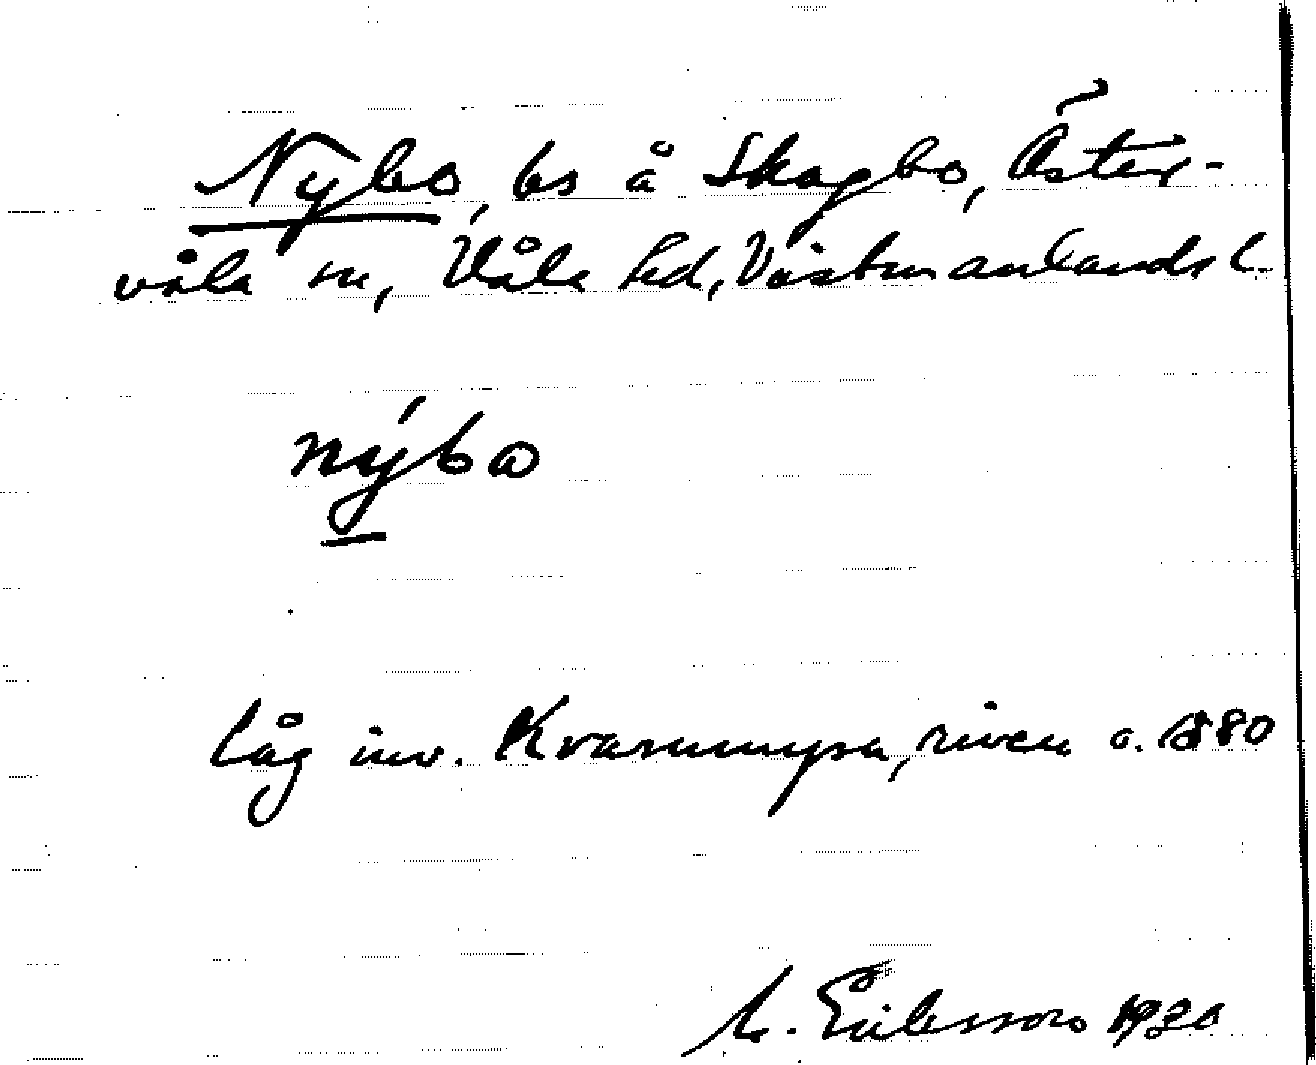 Nybo, bs å Skogbo, Öster-
våla sn, Våla hd, Västmanlands l.
nýbo
Låg inv. Kvarnmyra, riven o. 1880
Eriksson 1930